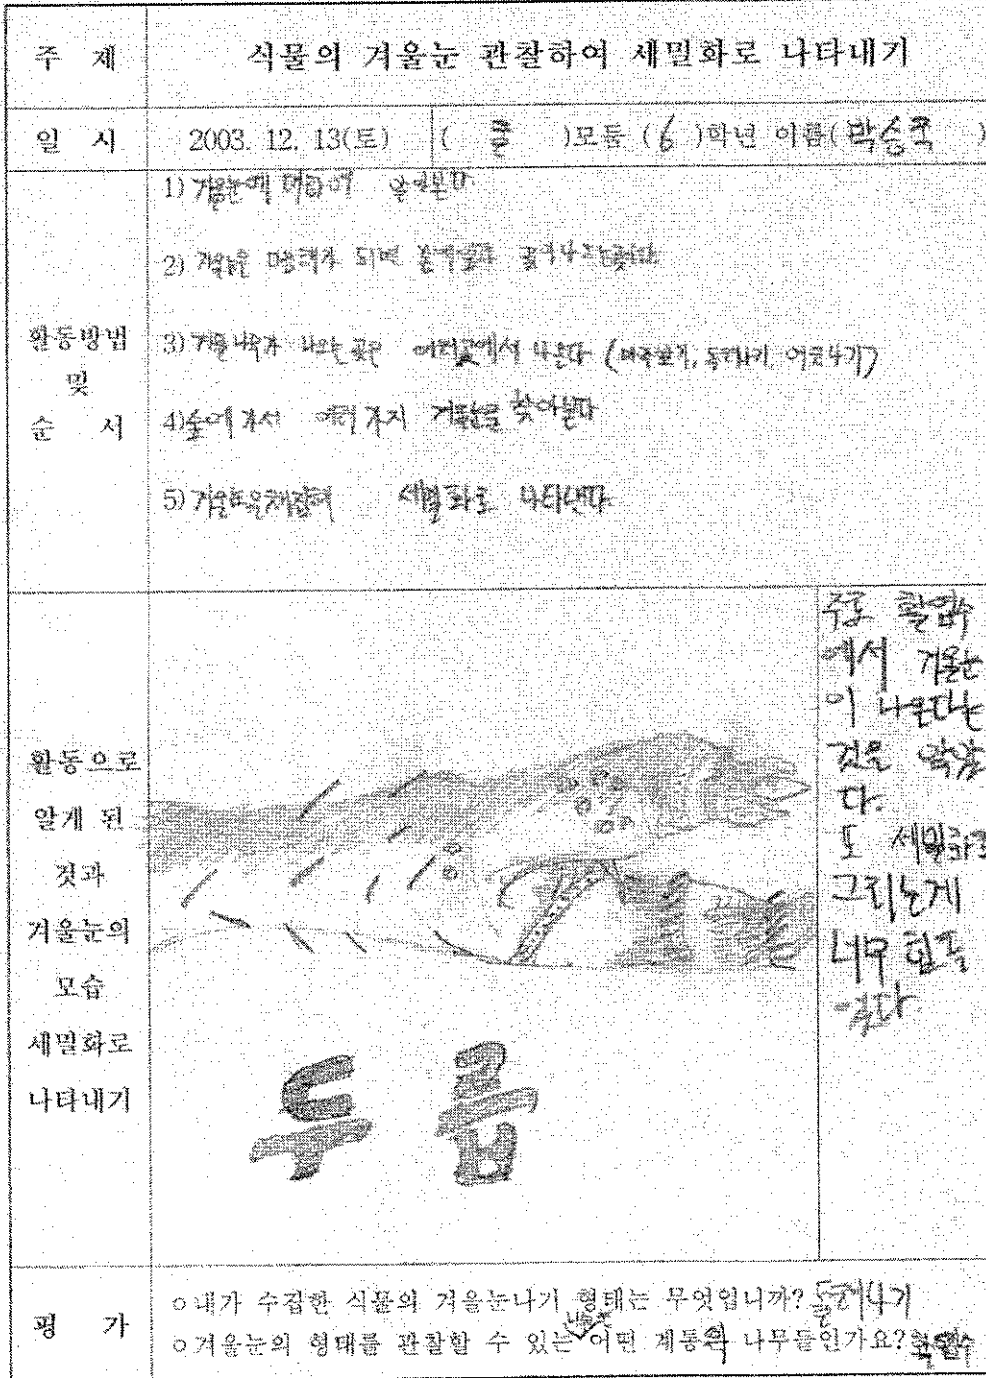 주 제 식물의 겨울눈 관찰하여 세밀화로 나타내기
일 시 2003. 12. 13(토) ( )모둠 (6 )학년 이름(박승국 )
활동방법
및
순 서
1) 겨울눈에 대하여 알아본다
2) 겨울눈은
3) 나오는 곳은 여러곳에서 나온다 (마주나기, 돌려나기, 어긋나기)
4) 숲에 가서 여러 가지 겨울눈을 찾아본다
5) 세밀화로 나타낸다
활동으로
알게 된
것과
겨울눈의
모습
세밀화로
나타내기
주로 활엽수
에서 겨울눈
이 나온다는
것을 알았
다.
또 세밀화로
그리는게
너무 힘들
었다
두릅
평 가
○내가 수집한 식물의 겨울눈나기 형태는 무엇입니까?
○겨울눈의 형태를 관찰할 수 있는 나무는 어떤 계통의 나무들인가요? 활엽수